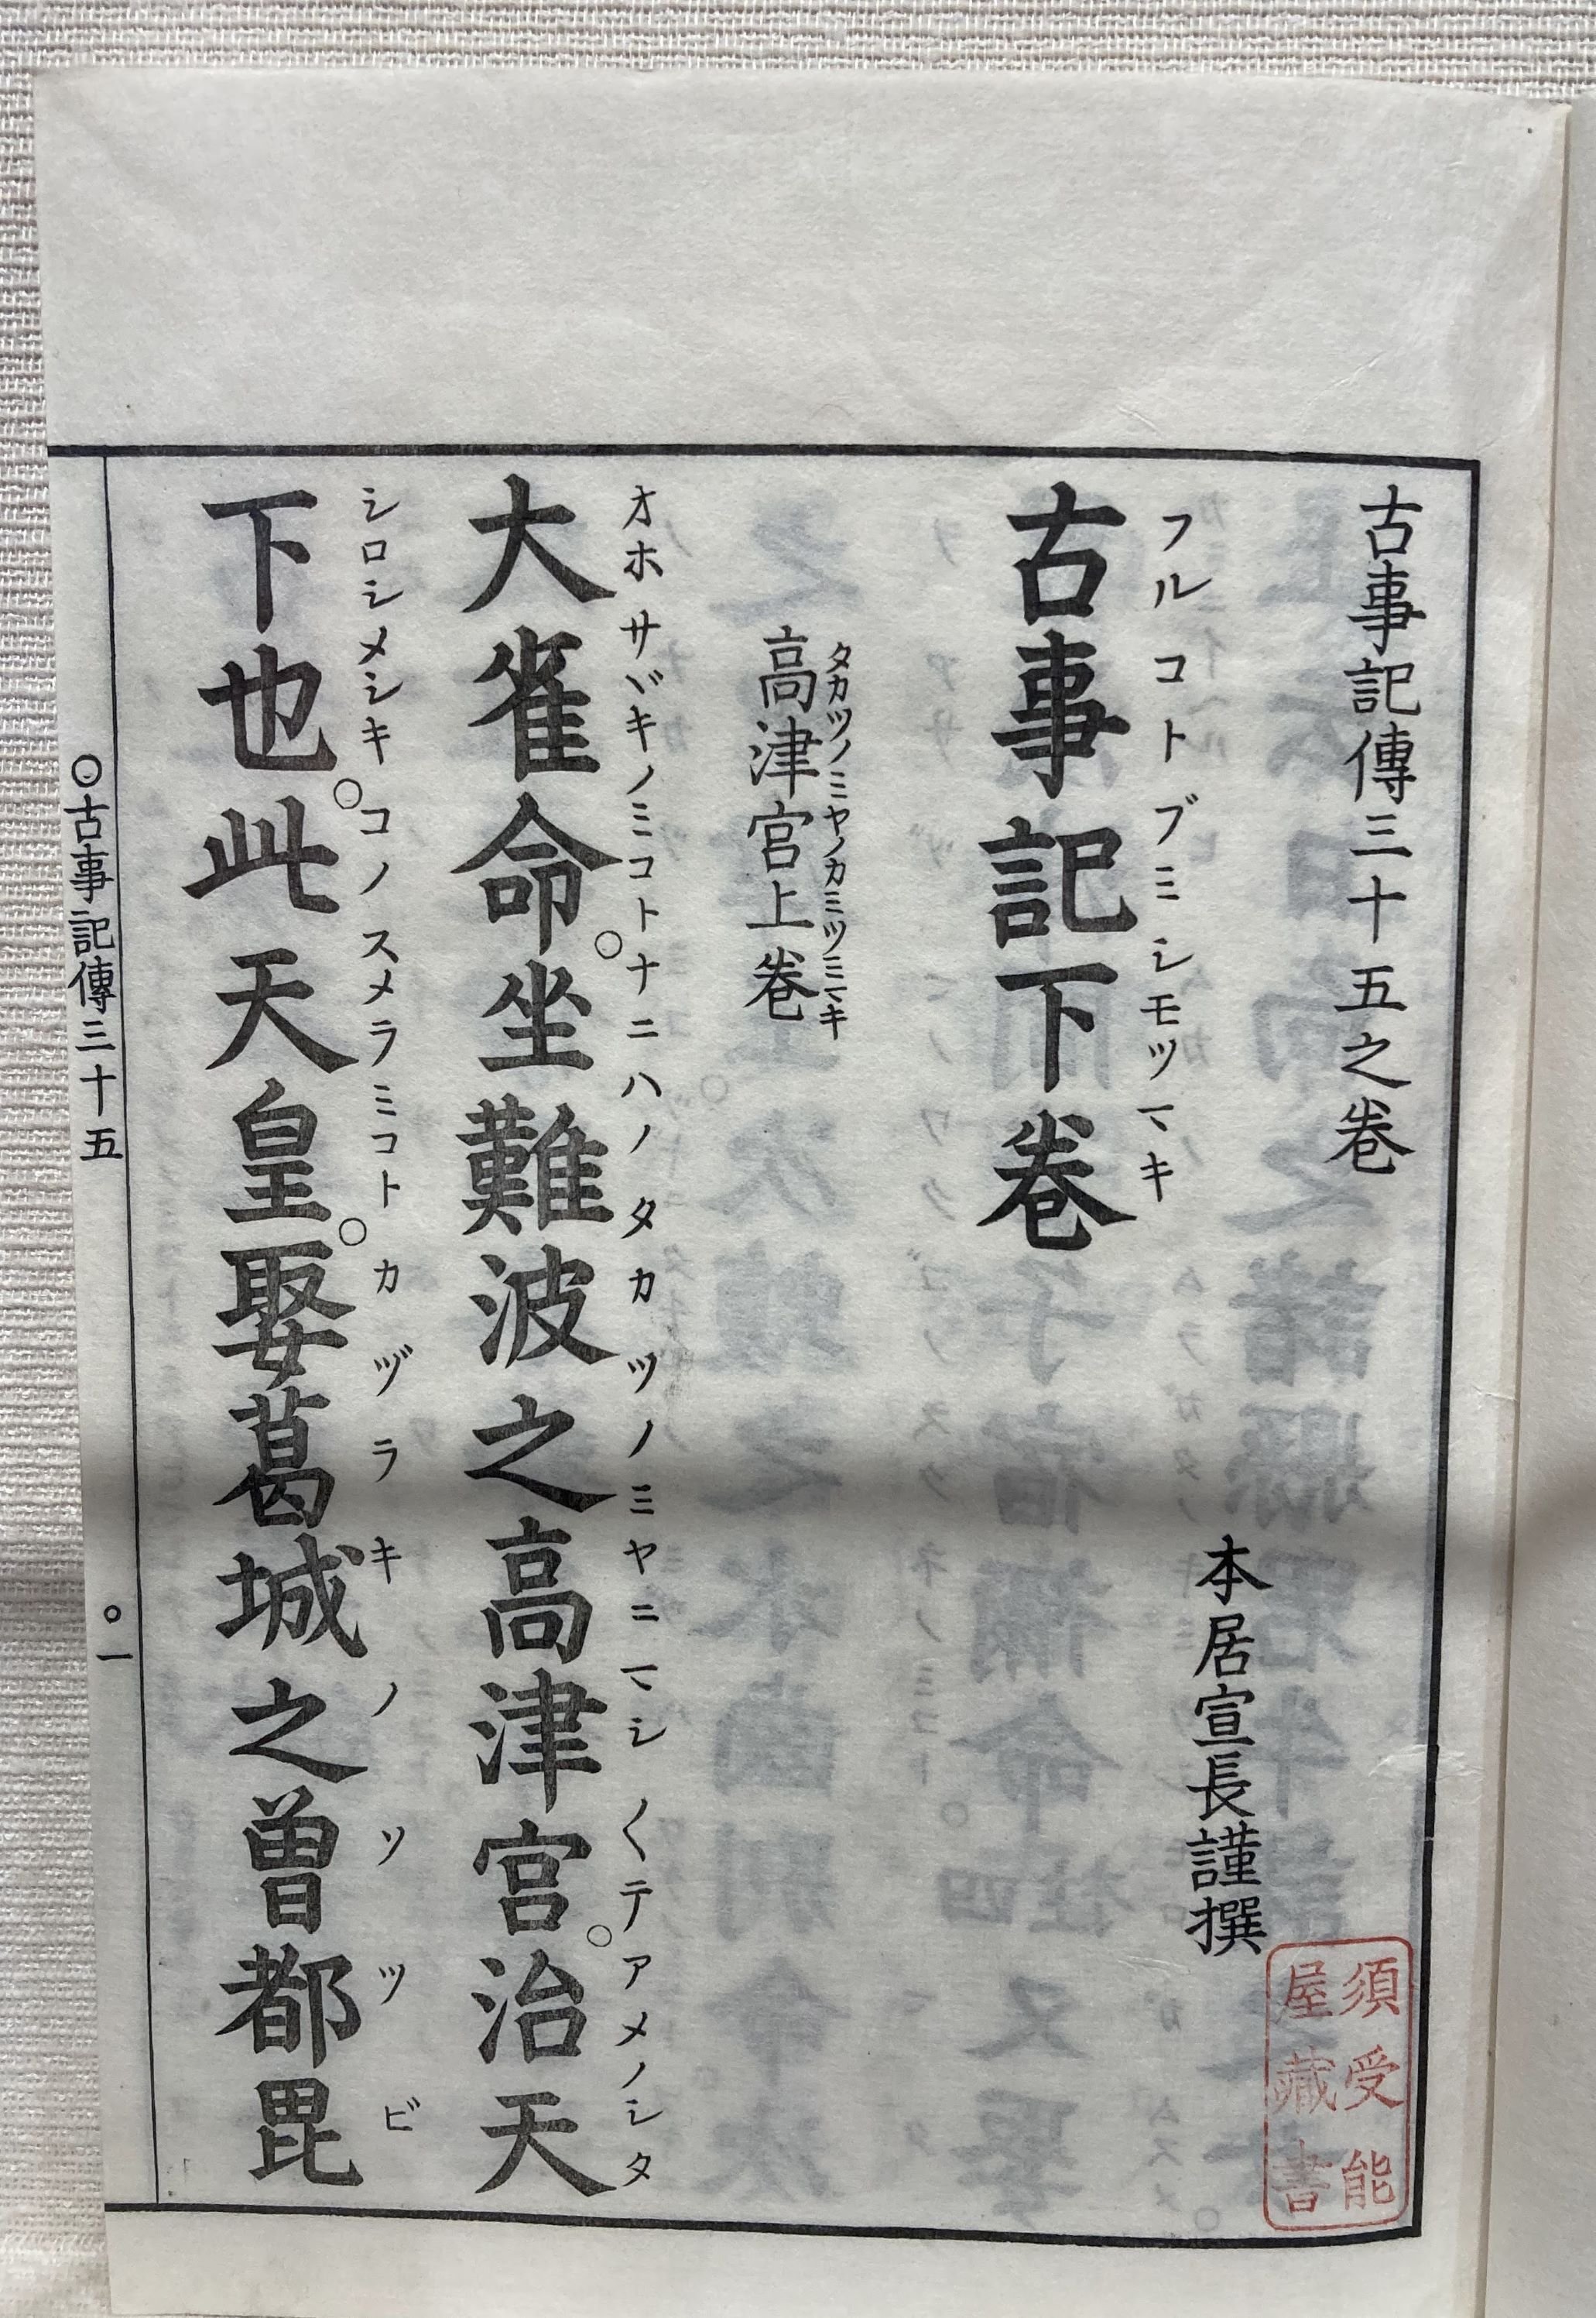 古事記傳三十五之卷
本居宣長謹撰
須受能
屋藏書
フルコトブミシモツマキ
古事記下卷
タカツノミヤノカミツミマキ
高津宮上卷
オホサヾキノミコトナニハノタカツノミヤニマシ〱テアメノシタ
大雀命。坐難波之高津宮。治天
シロシメシキコノスメラミコトカヅラキノソツビ
下也。此天皇。娶葛城之曽都毘
○古事記傳三十五
○一